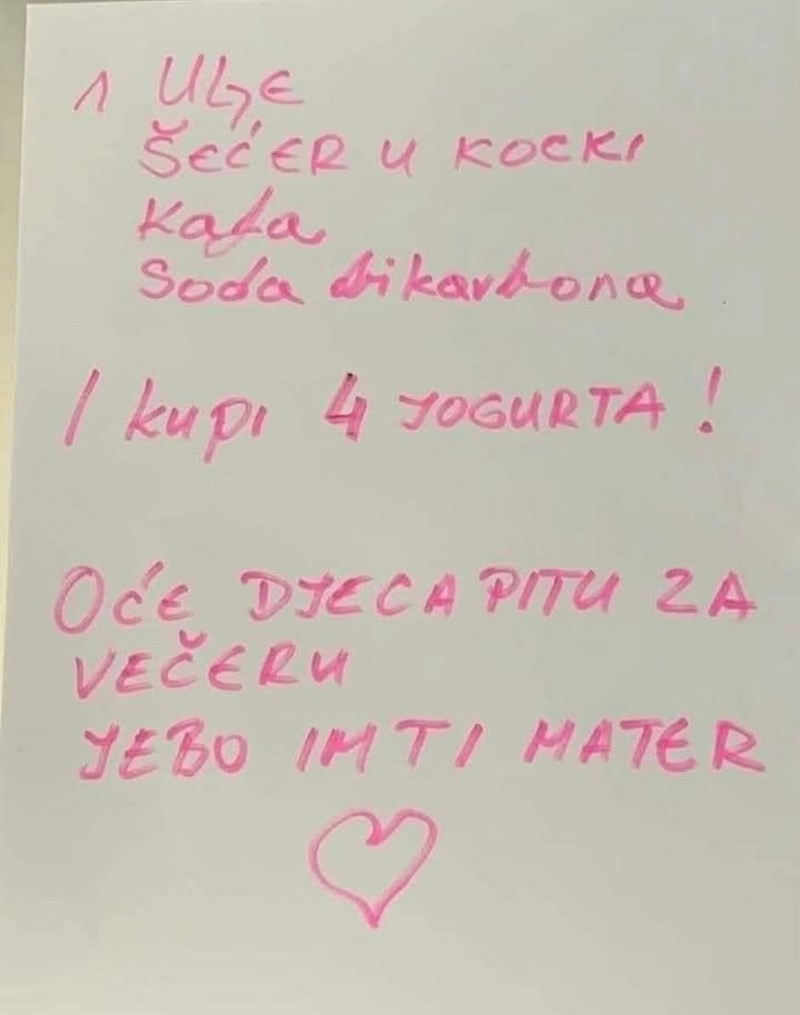 1 ULJE
ŠEĆER U KOCKI
Kafa
Soda bikarbona
I kupi 4 JOGURTA!
OĆE DJECA PITU ZA
VEČERU
JEBO IM TI MATER